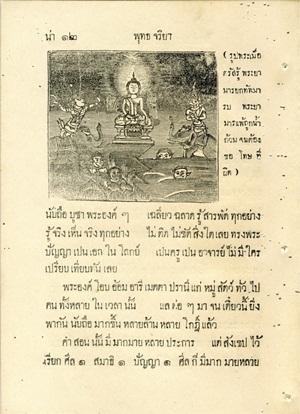 น่า ๑๒ พุทธ จริยา
( รูปพระเมื่อ
ตรัสรู้ พระยา
มารยกทัพมา
รบ พระยา
มารแพ้ถูกน้ำ
ท้วม จนต้อง
ขอ โทษ ที่
ผิด )
นับถือ บูชา พระองค์ ๆ เฉลียว ฉลาด รู้ สารพัด ทุกอย่าง
รู้ จริง เห็น จริง ทุกอย่าง ไม่ ติด ไม่ขัด สิ่งใด เลย ทรงพระ
ปัญญา เปน เอก ใน โลกย์ เปนครู เปน อาจารย์ ไม่ มี ใคร
เปรียบ เทียบทัน เลย
พระองค์ โอบ อ้อม อารี เมตตา ปรานี แก่ หมู่ สัตว์ ทั่ว ไป
คน ทั้งหลาย ใน เวลา นั้น แล ต่อ ๆ มา จน เดี๋ยวนี้ ยิ่ง
พากัน นับถือ มากขึ้น หลายล้าน หลาย โกฏิ แล้ว
คำ สอน นั้น มี มากมาย หลาย ประการ แต่ สังเขป ไว้
เรียก ศีล ๑ สมาธิ ๑ ปัญญา ๑ ศีล ก็ มี มาก มายหลวย